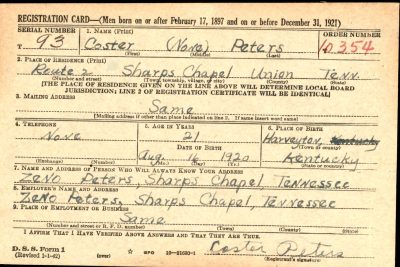 REGISTRATION CARD—(Men born on or after February 17, 1897 and on or before December 31, 1921)
SERIAL NUMBER 1. NAME (Print) ORDER NUMBER
T 93 Coster (None) Peters 10354
(First) (Middle) (Last)
2. PLACE OF RESIDENCE (Print)
Route 2 Sharps Chapel Union Tenn.
(Number and street) (Town, township, village, or city) (County) (State)
[THE PLACE OF RESIDENCE GIVEN ON THE LINE ABOVE WILL DETERMINE LOCAL BOARD
JURISDICTION; LINE 2 OF REGISTRATION CERTIFICATE WILL BE IDENTICAL]
3. MAILING ADDRESS
Same
[Mailing address if other than place indicated on line 2. If same insert word same]
4. TELEPHONE 5. AGE IN YEARS 6. PLACE OF BIRTH
None 21 Harveyton, Kentucky
DATE OF BIRTH (Town or county)
Aug. 16 1920 Kentucky
(Exchange) (Number) (Mo.) (Day) (Yr.) (State or country)
7. NAME AND ADDRESS OF PERSON WHO WILL ALWAYS KNOW YOUR ADDRESS
Zeno Peters, Sharps Chapel, Tennessee
8. EMPLOYER'S NAME AND ADDRESS
Zeno Peters, Sharps Chapel, Tennessee
9. PLACE OF EMPLOYMENT OR BUSINESS
Same
(Number and street or R. F. D. number) (Town) (County) (State)
I AFFIRM THAT I HAVE VERIFIED ABOVE ANSWERS AND THAT THEY ARE TRUE.
D. S. S. Form 1
(Revised 1-1-42) GPO 16—21630-1 Coster Peters
(Registrant's signature)